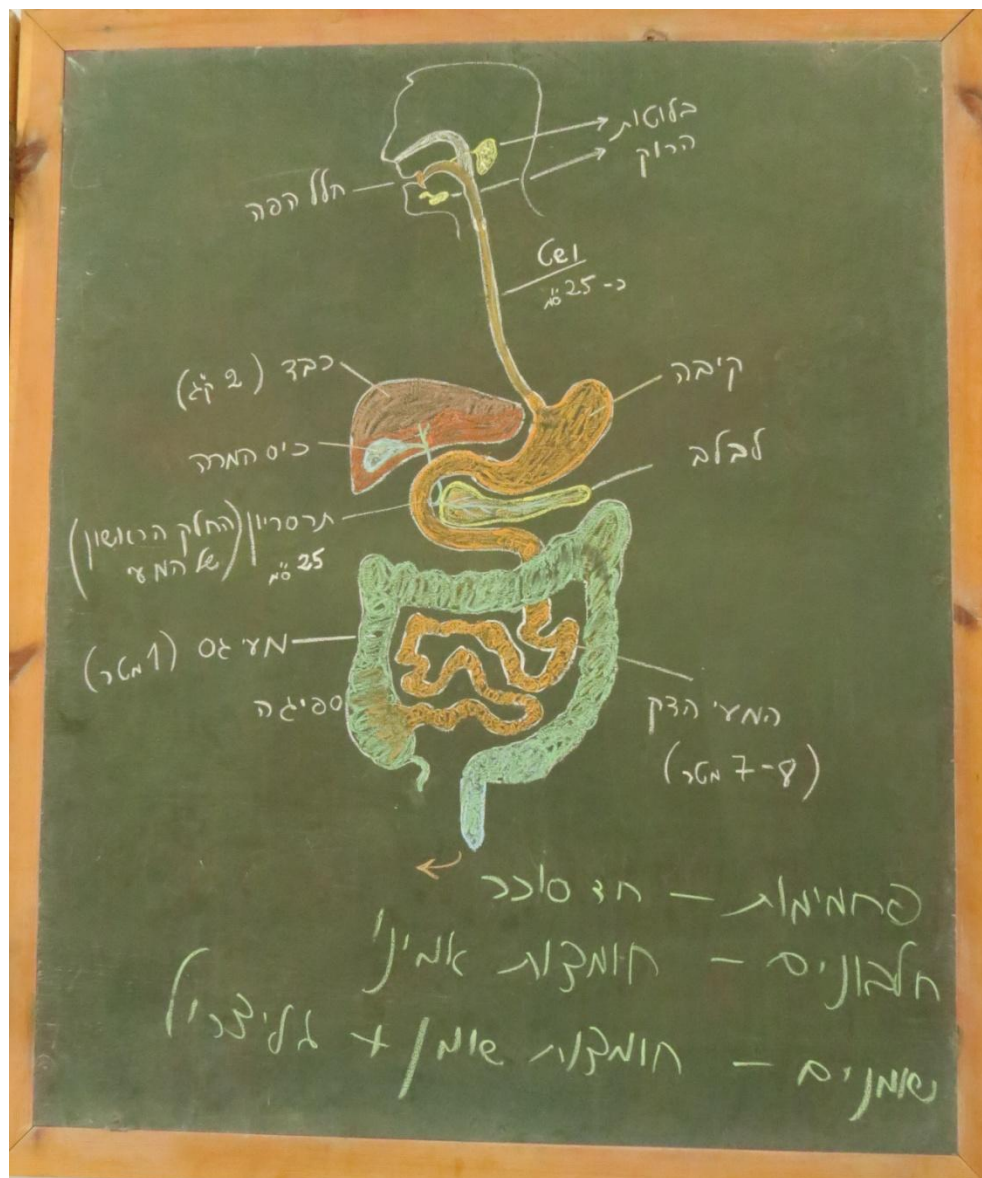 בלוטות
הרוק
חלל הפה
ושט
כ- 25 ס"מ
כבד (2 ק"ג)
קיבה
כיס המרה
לבלב
תרסריון (החלק הראשון
של המעי)
25 ס"מ
מעי גס (1 מטר)
ספיגה
המעי הדק
(7-8 מטר)
פחמימות - חד סוכר
חלבונים - חומצות אמינו
שומנים - חומצות שומן + גליצריל